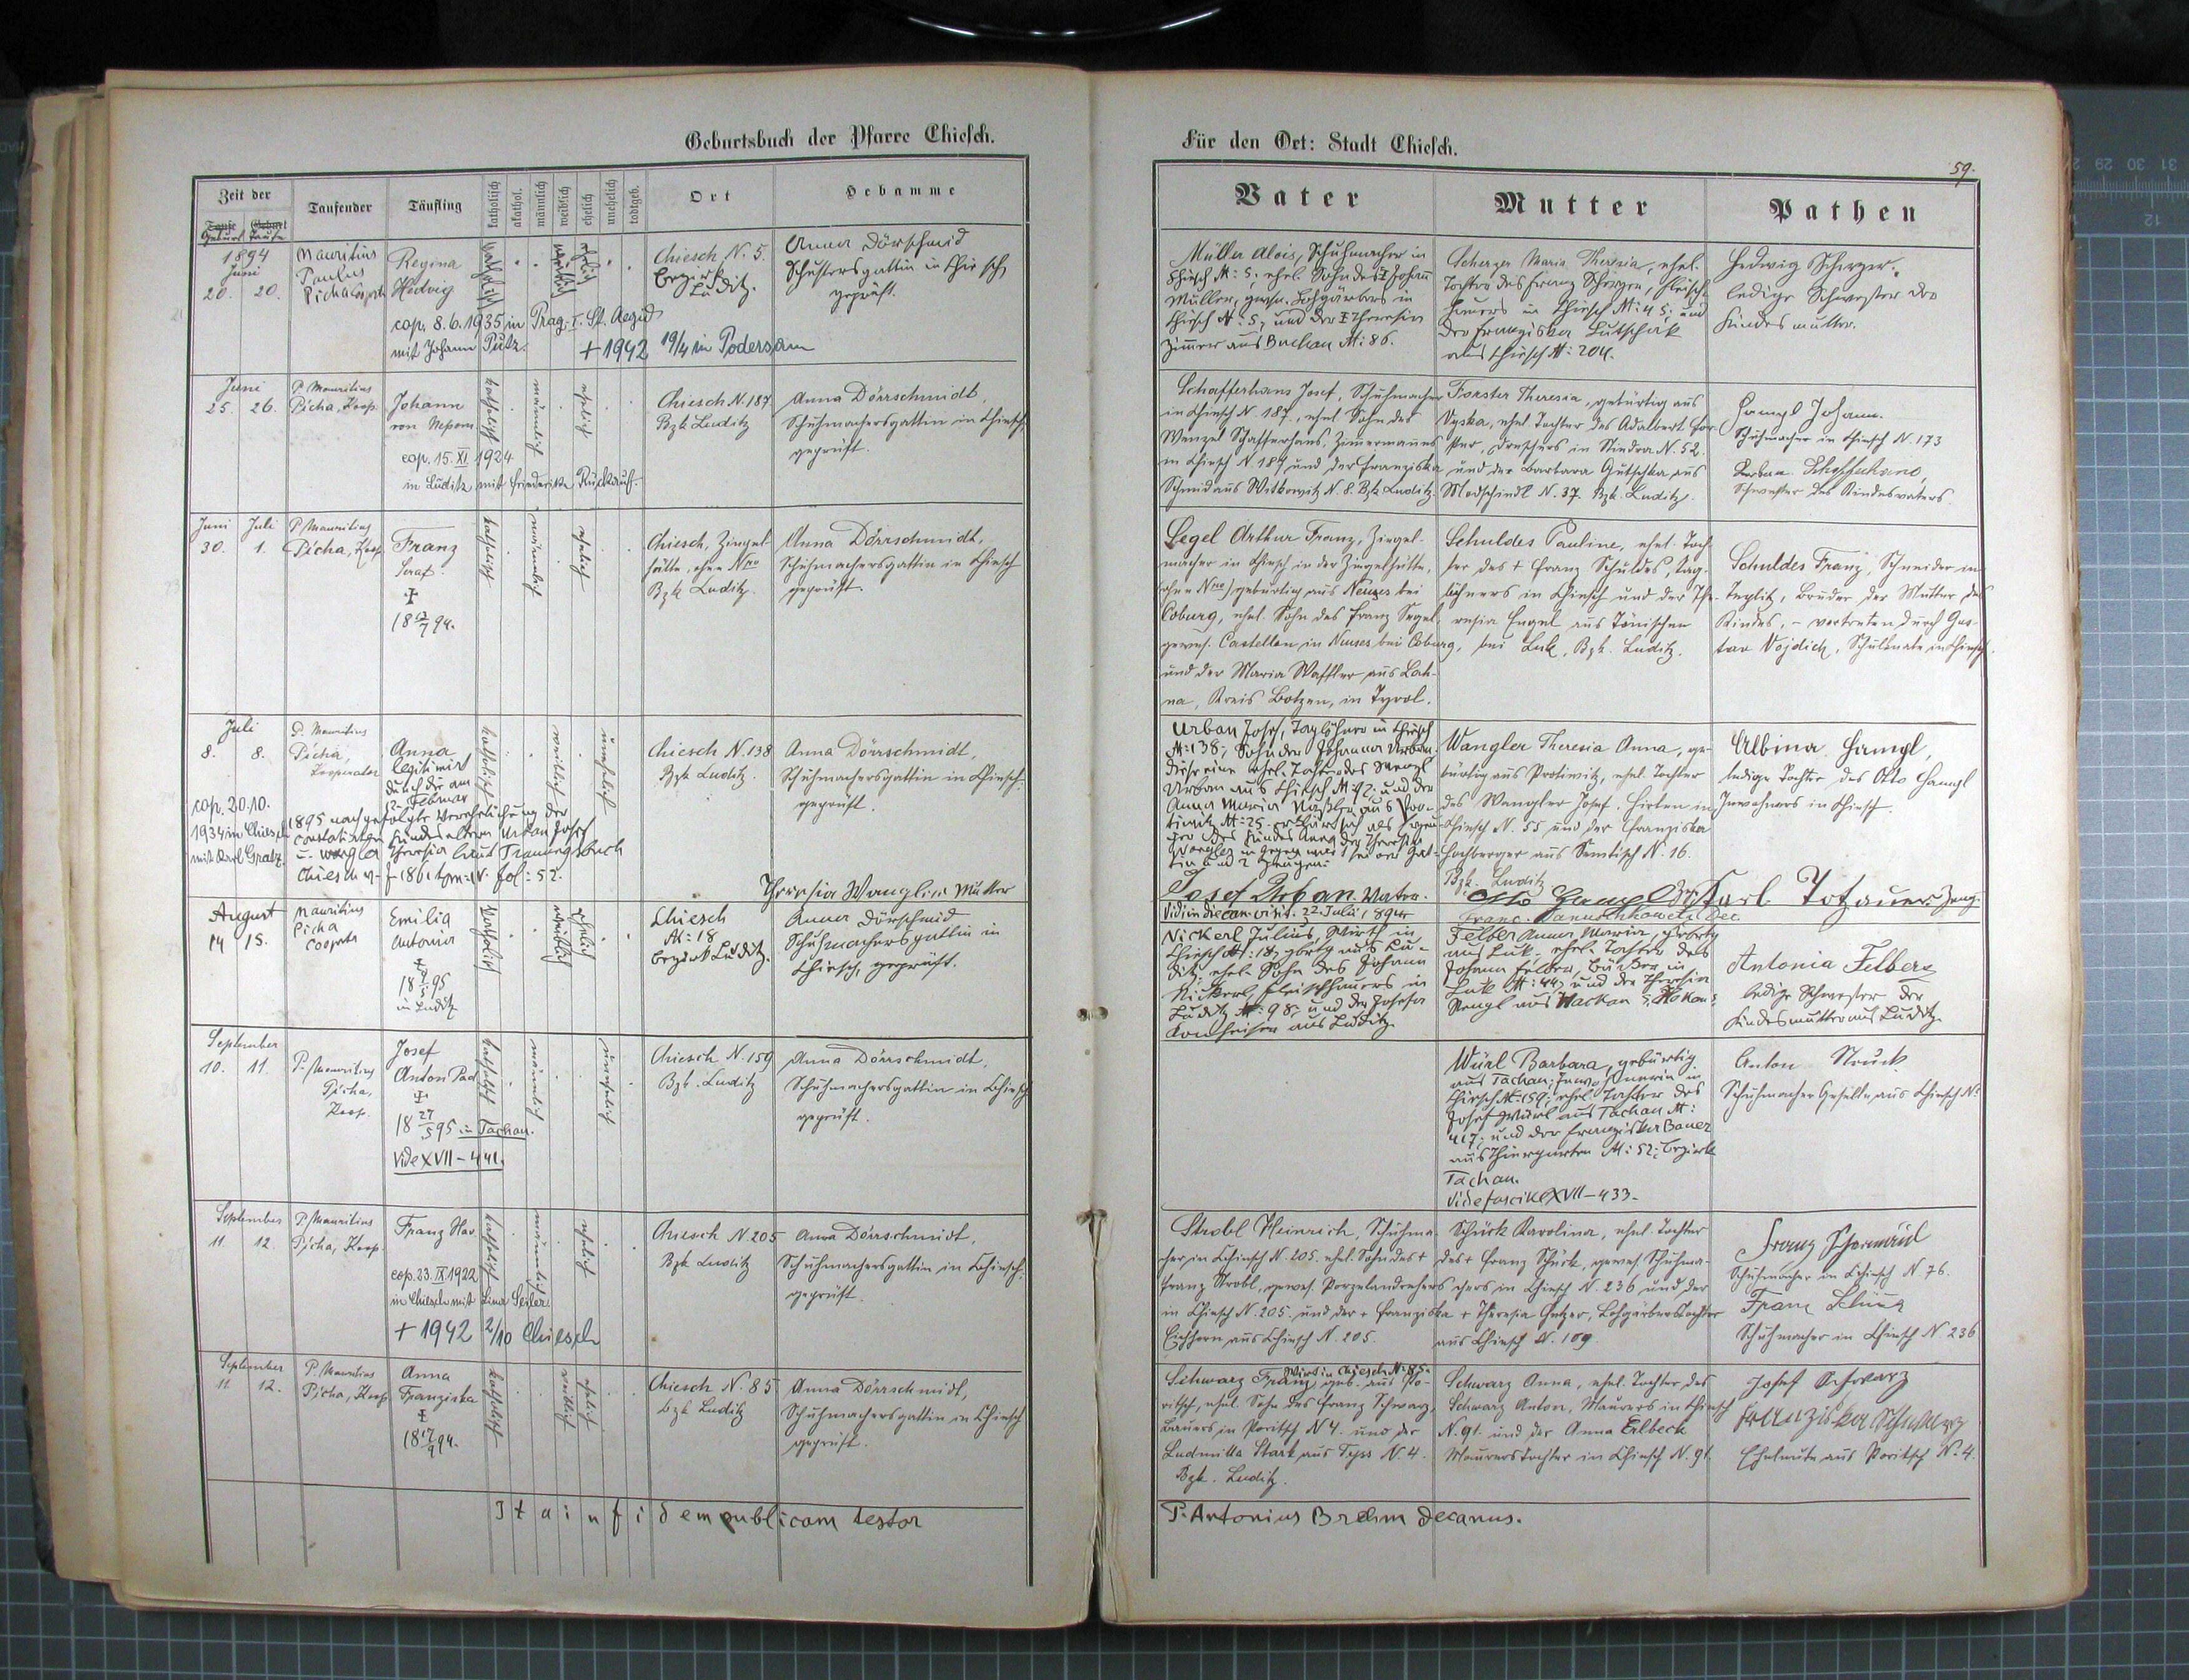 Geburtsbuch der Pfarre Chiesch.
Für den Ort: Stadt Chiesch.
59.
Zeit der
Taufe Geburt
Geburt Taufe
Taufender
Täufling
katholisch
akathol.
männlich
weiblich
ehelich
unehelich
todtgeb.
Ort
Hebamme
Vater
Mutter
Pathen
1894
Juni
20. 20.
Mauritius
Paulus
Picha Coopr
Regina
Hedwig
cop. 8.6.1935 in Prag, I. St. Aegid
mit Johann Putz.
+ 1942 19/4 in Podersam
katholisch
weiblich
ehelich
Chiesch N. 5.
Bezirk
Luditz.
Anna Dörschmid
Schustersgattin in Chiesch,
geprüft.
Müller Alois, Schuhmacher in
Chiesch N: 5, ehel. Sohn des + Johann
Müller, gewes. Lohgärbers in
Chiesch N: 5, und der + Theresia
Zimmer aus Buchau N: 86.
Scherzer Maria Theresia, ehel.
Tochter des Franz Scherzer, Fleisch-
hauers in Chiesch N: 45; und
der Franziska Lutschak
aus Chiesch N: 204.
Hedwig Scherzer,
ledige Schwester der
Kindesmutter.
Juni
25. 26.
P. Mauritius
Picha, Koop.
Johann
von Nepom
cop. 15. XI. 1924
in Luditz mit Friederike Ruckauf.
katholisch
männlich
ehelich
Chiesch N. 187
Bzk Luditz
Anna Dörrschmidt,
Schuhmachersgattin in Chiesch,
geprüft.
Schafferhans Josef, Schuhmacher
in Chiesch N. 187, ehel. Sohn des
Wenzel Schafferhans, Zimmermanns
in Chiesch N. 187 und der Franziska
Schmid aus Witkowitz N. 8. Bzk Luditz.
Forster Theresia, gebürtig aus
Vyska, ehel. Tochter des Adalbert For-
ster, Dreschers in Stiedra N. 52.
und der Barbara Gutschka aus
Modschiedl N. 37. Bzk. Luditz.
Hampl Johann.
Schuhmacher in Chiesch N. 173
Schwester des Kindesvaters
Juni Juli
30. 1.
P. Mauritius
Picha, Koop
Franz
Seraf.
+
18 12/7 94.
katholisch
männlich
ehelich
Chiesch, Ziegel-
hütte, ohne Nro
Bzk Luditz.
Anna Dörrschmidt,
Schuhmachersgattin in Chiesch
geprüft.
Segel Arthur Franz, Ziegel-
macher in Chiesch in der Ziegelhütte,
(ohne Nro) gebürtig aus Neuses bei
Coburg, ehel. Sohn des Franz Segel,
gewes. Castellan in Neuses bei Coburg,
und der Maria Waffler aus Lach-
na, Kreis Botzen, in Tyrol.
Schuldes Pauline, ehel. Toch-
ter des + Franz Schuldes, Tag-
löhners in Chiesch und der The-
resia Engel aus Tönischen
bei Luk, Bzk. Luditz.
Schuldes Franz, Schneider in
Teplitz, Bruder der Mutter des
Kindes, – vertreten durch Gus-
tav Vojdich, Schulknabe in Chiesch.
Juli
8. 8.
P. Mauritius
Picha,
Kooperator
Anna
legitimirt
durch die am
12. Februar
1895 nachgefolgte Verehelichung der
Kindeseltern Urban Josef
u. Wangler Theresia laut Trauungsbuch
Chiesch fol: 52.
cop. 20.10.
1934 in Chiesch
mit Karl Gratz.
katholisch
weiblich
unehelich
Chiesch N. 138
Bzk Luditz.
Anna Dörrschmidt,
Schuhmachersgattin in Chiesch.
geprüft.
Theresia Wangler Mutter
Urban Josef, Taglöhner in Chiesch
N: 138, Sohn der Johanna Urban,
diese eine ehel. Tochter des Wenzl
Urban aus Chiesch N: 92. und der
Anna Maria aus Pro-
tiwitz N: 25. erklärt sich als Erzeu-
ger des Kindes Anna der Theresia
Wangler in Gegenwart seiner Gat-
tin und 2 Zeugen:
Josef Urban. Vater.
Wangler Theresia Anna, ge-
bürtig aus Protiwitz, ehel. Tochter
des Wangler Josef. Hirten in
Chiesch N. 55 und der Franziska
Hochberger aus Semtisch N. 16.
Bzk. Luditz
Otto Hampl Karl Totzauer Zeug.
Albina Hampl,
ledige Tochter des Otto Hampl
Inwohners in Chiesch
Vidi in die can. visit. 22. Juli 1894
August
14 15.
Mauritius
Picha
Cooprtr
Emilia
Antonia
+
18 9/5 95
in Luditz
katholisch
weiblich
ehelich
Chiesch
N: 18
Bezirk Luditz.
Anna Dörschmid
Schuhmachersgattin in
Chiesch, geprüft.
Nickerl Julius, Wirth in
Chiesch N: 18, gebrtg aus Lu-
ditz, ehel. Sohn des Johann
Nickerl, Fleischhauers in
Luditz N: 98; und der Josefa
Kornheiser aus Luditz.
Felber Anna Maria, gebrtg
aus Luk, ehel. Tochter des
Johann Felber, in
Luk N: 44, und der Theresia
Stengl aus
Antonia Felber
ledige Schwester der
Kindesmutter aus Luditz.
September
10. 11.
P. Mauritius
Picha,
Koop.
Josef
Anton Pad
+
18 27/5 95 in Tachau.
Vide XVII – 441.
katholisch
männlich
unehelich
Chiesch N. 159
Bzk. Luditz
Anna Dörrschmidt,
Schuhmachersgattin in Chiesch
geprüft.
Würl Barbara, gebürtig
aus Tachau; Inwohnerin in
Chiesch N: 159; ehel. Tochter des
Josef Würl aus Tachau N:
417; und der Franziska Bauer
aus Thiergarten N: 52; Bezirk
Tachau.
Vide fascikel XVII – 433.
Anton Struck
Schuhmacher Geselle aus Chiesch N.
September
11 12.
P. Mauritius
Picha, Koop.
Franz Xav
cop. 23. IX 1922
in Chiesch mit Lina Seiler.
+ 1942 2/10 Chiesch
katholisch
männlich
ehelich
Chiesch N. 205
Bzk Luditz
Anna Dörrschmidt,
Schuhmachersgattin in Chiesch.
geprüft.
Strobl Heinrich, Schuhma-
cher in Chiesch N. 205. ehel. Sohn des +
Franz Strobl, gewes. Porzelandrehers
in Chiesch N. 205. und der + Franziska
Eichhorn aus Chiesch N. 205.
Schück Karolina, ehel. Tochter
des + Franz Schück, gewes. Schuhma-
chers in Chiesch N. 236 und der
+ Theresia Hetzer, Lohgärberstochter
aus Chiesch N. 109.
Schuhmacher in Chiesch N. 76.
Schuhmacher in Chiesch N 236
September
11 12.
P. Mauritius
Picha, Koop
Anna
Franziska
+
18 17/9 94.
katholisch
weiblich
ehelich
Chiesch N. 85
Bzk Luditz
Anna Dörrschmidt,
Schuhmachersgattin in Chiesch
geprüft.
Wirt in Chiesch N: 85.
Schwarz Franz, geb. aus Po-
ritsch, ehel. Sohn des Franz Schwarz,
Bauers in Poritsch N 4. und der
Ludmilla Stark aus Tyss N. 4.
Bzk. Luditz.
Schwarz Anna, ehel. Tochter des
Schwarz Anton, Maurers in Chiesch
N. 91. und der Anna Erlbeck
Maurerstochter in Chiesch N. 91
Josef Schwarz
Franziska Schwarz
Eheleute aus Poritsch N. 4.
Ita in fidem publicam testor
P. Antonius Brehm decanus.